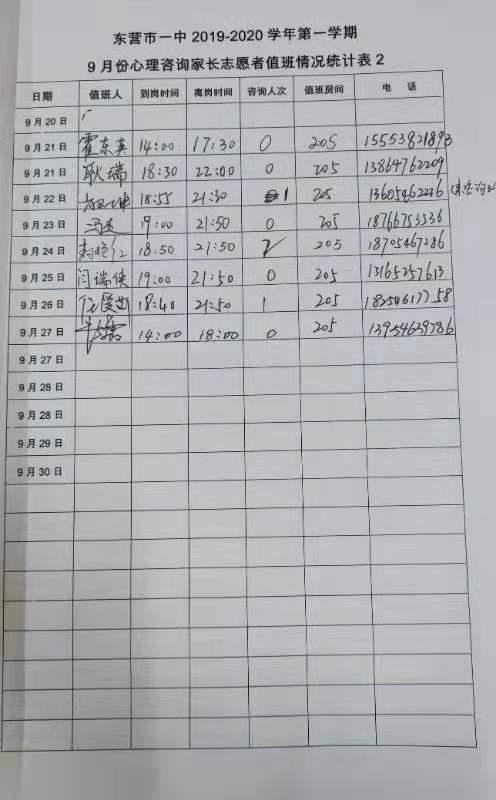 东营市一中 2019-2020 学年第一学期
9 月份心理咨询家长志愿者值班情况统计表 2
日期 值班人 到岗时间 离岗时间 咨询人次 值班房间 电 话
9 月 20 日
9 月 21 日 霍东英 14:00 17:30 0 205 15553821893
9 月 21 日 耿瑞 18:30 22:00 0 205 13864762209
9 月 22 日 18:55 21:30 1 205 13605462236
9 月 23 日 19:00 21:50 0 205 18766753336
9 月 24 日 18:50 21:50 2 205 18705467286
9 月 25 日 闫瑞侠 19:00 21:50 0 205 13165257613
9 月 26 日 18:40 21:50 1 205 18354617758
9 月 27 日 14:00 18:00 0 205 13954629786
9 月 27 日
9 月 28 日
9 月 28 日
9 月 29 日
9 月 30 日